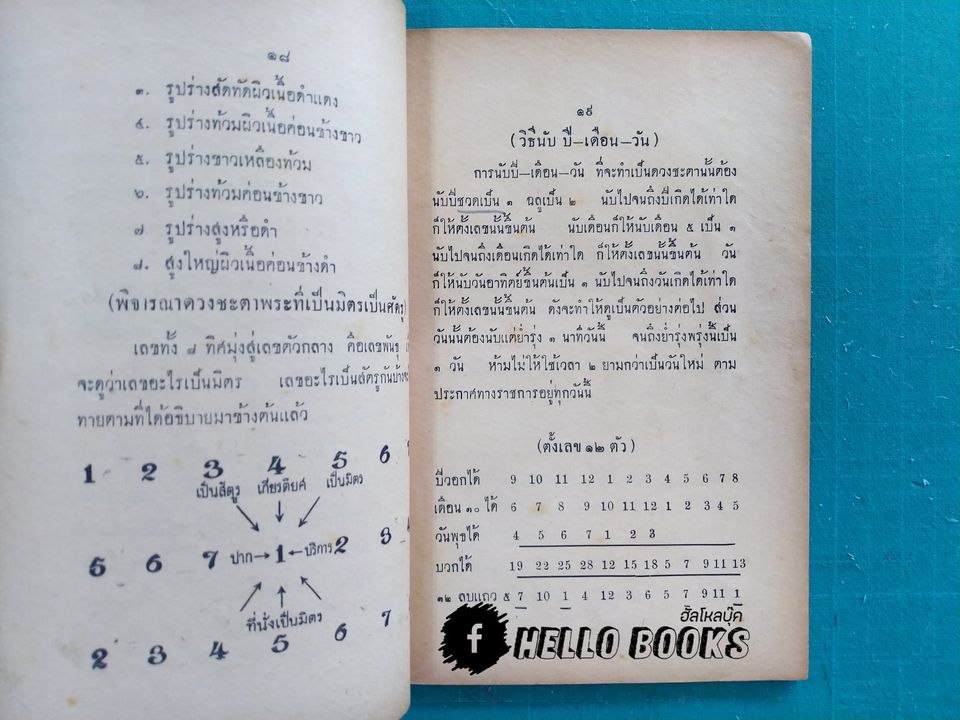 ๑๘
๓. รูปร่างสัดทัดผิวเนื้อดำแดง
๔. รูปร่างท้วมผิวเนื้อค่อนข้างขาว
๕. รูปร่างขาวเหลืองท้วม
๖. รูปร่างท้วมค่อนข้างขาว
๗ รูปร่างสูงหรือดำ
๘. สูงใหญ่ผิวเนื้อค่อนข้างดำ
(พิจารณาดวงชะตาพระที่เป็นมิตรเป็นศัตรู)
เลขทั้ง ๘ ทิศมุ่งสู่เลขตัวกลาง คือเลขพันธุ
จะดูว่าเลขอะไรเป็นมิตร เลขอะไรเป็นสัตรูกันบ้าง
ทายตามที่ได้อธิบายมาข้างต้นแล้ว
1 2 3 4 5 6
เป็นสัตรู เกียรติยศ เป็นมิตร
5 6 7 ปาก→1←บริการ 2 3
ที่นั่งเป็นมิตร
2 3 4 5 6 7
๑๙
(วิธีนับ ปี—เดือน—วัน)
การนับปี—เดือน—วัน ที่จะทำเป็นดวงชะตานั้นต้อง
นับปีชวดเป็น ๑ ฉลูเป็น ๒ นับไปจนถึงปีเกิดได้เท่าใด
ก็ให้ตั้งเลขนั้นขึ้นต้น นับเดือนก็ให้นับเดือน ๕ เป็น ๑
นับไปจนถึงเดือนเกิดได้เท่าใด ก็ให้ตั้งเลขนั้นขึ้นต้น วัน
ก็ให้นับวันอาทิตย์ขึ้นต้นเป็น ๑ นับไปจนถึงวันเกิดได้เท่าใด
ก็ให้ตั้งเลขนั้นขึ้นต้น ดังจะทำให้ดูเป็นตัวอย่างต่อไป ส่วน
วันนั้นต้องนับแต่ย่ำรุ่ง ๑ นาทีวันนี้ จนถึงย่ำรุ่งพรุ่งนี้เป็น
๑ วัน ห้ามไม่ให้ใช้เวลา ๒ ยามกว่าเป็นวันใหม่ ตาม
ประกาศทางราชการอยู่ทุกวันนี้
(ตั้งเลข ๑๒ ตัว)
ปีวอกได้ 9 10 11 12 1 2 3 4 5 6 7 8
เดือน ๑๐ ได้ 6 7 8 9 10 11 12 1 2 3 4 5
วันพุธได้ 4 5 6 7 1 2 3
บวกได้ 19 22 25 28 12 15 18 5 7 9 11 13
๑๒ ลบแถว ๕ 7 10 1 4 12 3 6 5 7 9 11 1
ฮัลโหลบุ๊ค
f HELLO BOOKS